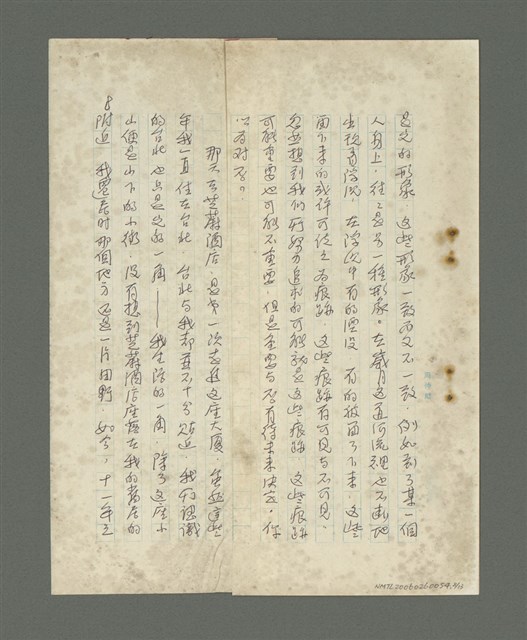 是它的形象。這些形象一致而又不一致,例如到了某一個
人身上,往往是另一種形象。在歲月這道河流裡也不斷地
出現著浮沉,在浮沉中有的湮沒,有的被留了下來,這些
留下來的或許可稱之為痕跡,這些痕跡有可見與不可見,
忽然想到我們所努力追求的可能就是這些痕跡,這些痕跡
可能重要也可能不重要,但是重要與否有待未來決定,你
以為對否?。
那天在芝蔴酒店,是第一次走進這座大廈,雖然這些
年我一直住在台北,台北與我却並不十分貼近,我所認識
的台北也只是它的一角——我生活的一角,除了這座小
山便是山下的小街,沒有想到芝蔴酒店座落在我的舊居的
附近,我遷居時那個地方還是一片田野,如今,十一年之
8
NMTL20060260054